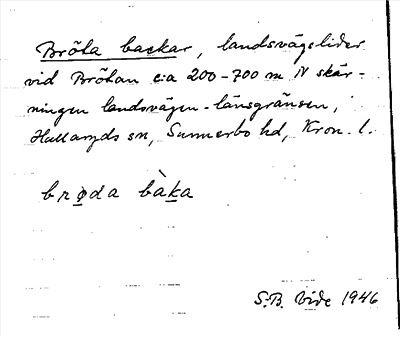 Bröta backar, landsvägslider
vid Brötan c:a 200-700 m N skär-
ningen landsvägen-länsgränsen,
Hallaryds sn, Sunnerbo hd, Kron. l.
brøda bàka
S.B. Vide 1946